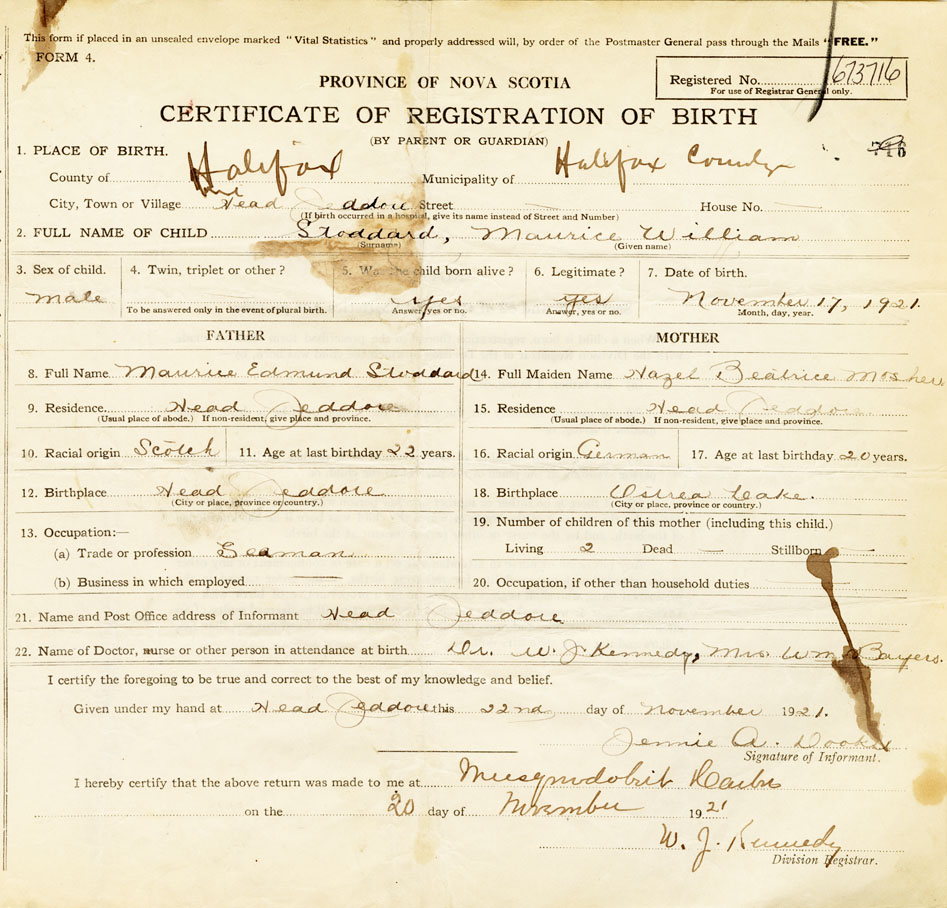 This form if placed in an unsealed envelope marked "Vital Statistics" and properly addressed will, by order of the Postmaster General pass through the Mails "FREE."
FORM 4.
PROVINCE OF NOVA SCOTIA
Registered No. 673716
For use of Registrar General only.
CERTIFICATE OF REGISTRATION OF BIRTH
(BY PARENT OR GUARDIAN)
1. PLACE OF BIRTH.
County of Halifax Municipality of Halifax County
City, Town or Village Head Jeddore Street House No.
(If birth occurred in a hospital, give its name instead of Street and Number)
2. FULL NAME OF CHILD Stoddard, Maurice William
(Surname) (Given name)
3. Sex of child. 4. Twin, triplet or other? 5. Was the child born alive? 6. Legitimate? 7. Date of birth.
male yes yes November 17, 1921.
To be answered only in the event of plural birth. Answer, yes or no. Answer, yes or no. Month, day, year.
FATHER MOTHER
8. Full Name Maurice Edmund Stoddard 14. Full Maiden Name Hazel Beatrice Mosher
9. Residence Head Jeddore 15. Residence Head Jeddore
(Usual place of abode.) If non-resident, give place and province. (Usual place of abode.) If non-resident, give place and province.
10. Racial origin Scotch 11. Age at last birthday 22 years. 16. Racial origin German 17. Age at last birthday 20 years.
12. Birthplace Head Jeddore 18. Birthplace Ostrea Lake.
(City or place, province or country.) (City or place, province or country.)
13. Occupation:— 19. Number of children of this mother (including this child.)
(a) Trade or profession Seaman Living 2 Dead — Stillborn —
(b) Business in which employed — 20. Occupation, if other than household duties
21. Name and Post Office address of Informant Head Jeddore
22. Name of Doctor, nurse or other person in attendance at birth Dr. W J Kennedy, Mrs. Wm Bayers.
I certify the foregoing to be true and correct to the best of my knowledge and belief.
Given under my hand at Head Jeddore this 22nd day of November 1921.
Jennie A.
Signature of Informant.
I hereby certify that the above return was made to me at Musquodoboit Harbr
on the 20 day of November 1921
W. J. Kennedy
Division Registrar.